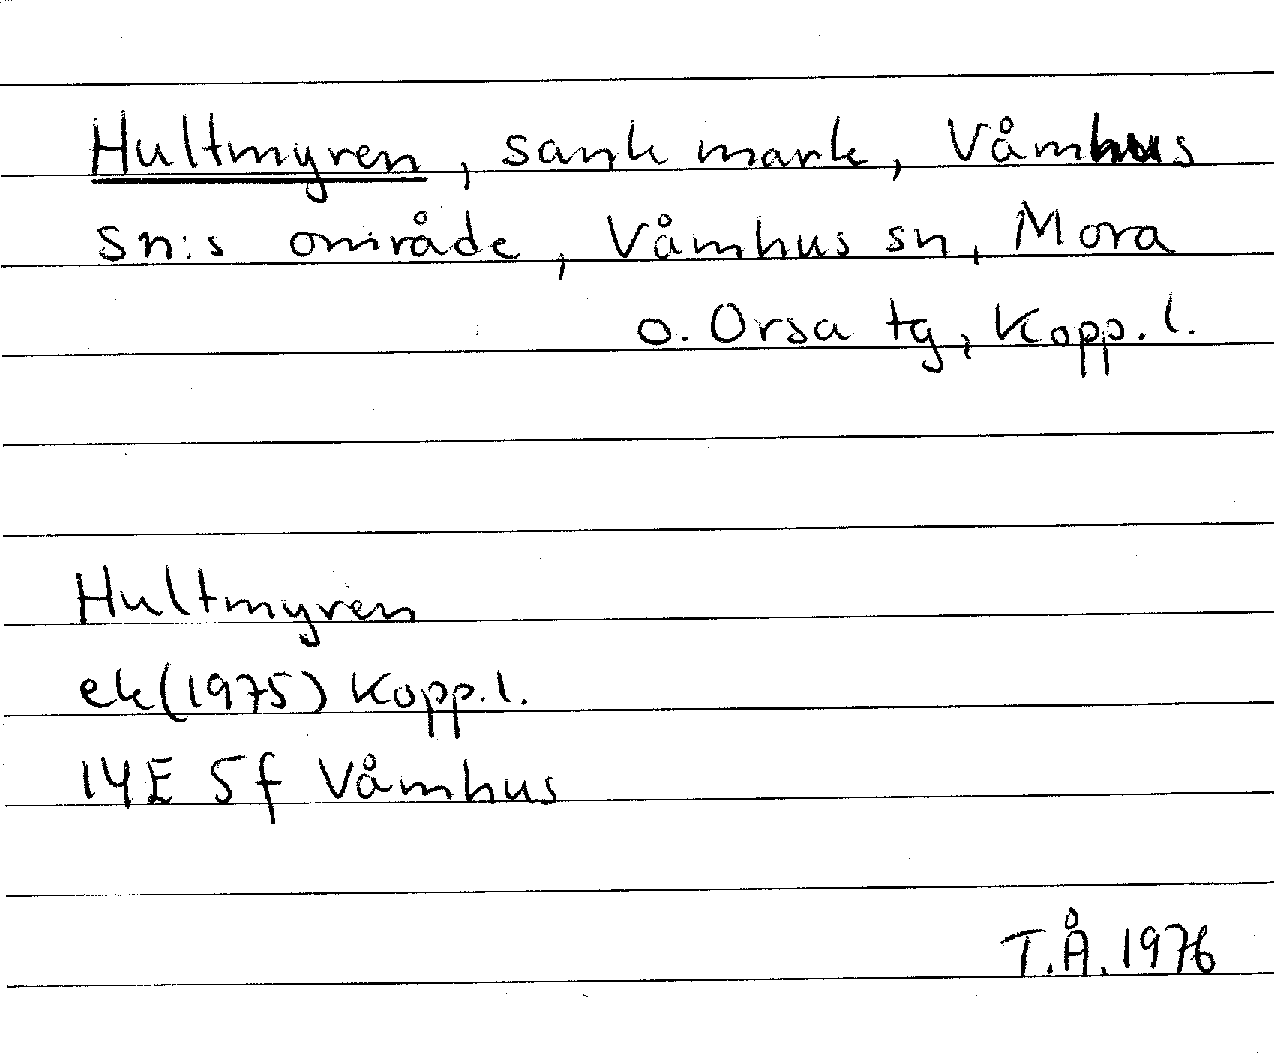 Hultmyren, sank mark, Våmhus
sn:s område, Våmhus sn, Mora
o. Orsa tg, Kopp.l.
Hultmyren
ek(1975) Kopp.l.
14E 5f Våmhus
T.Å.1976